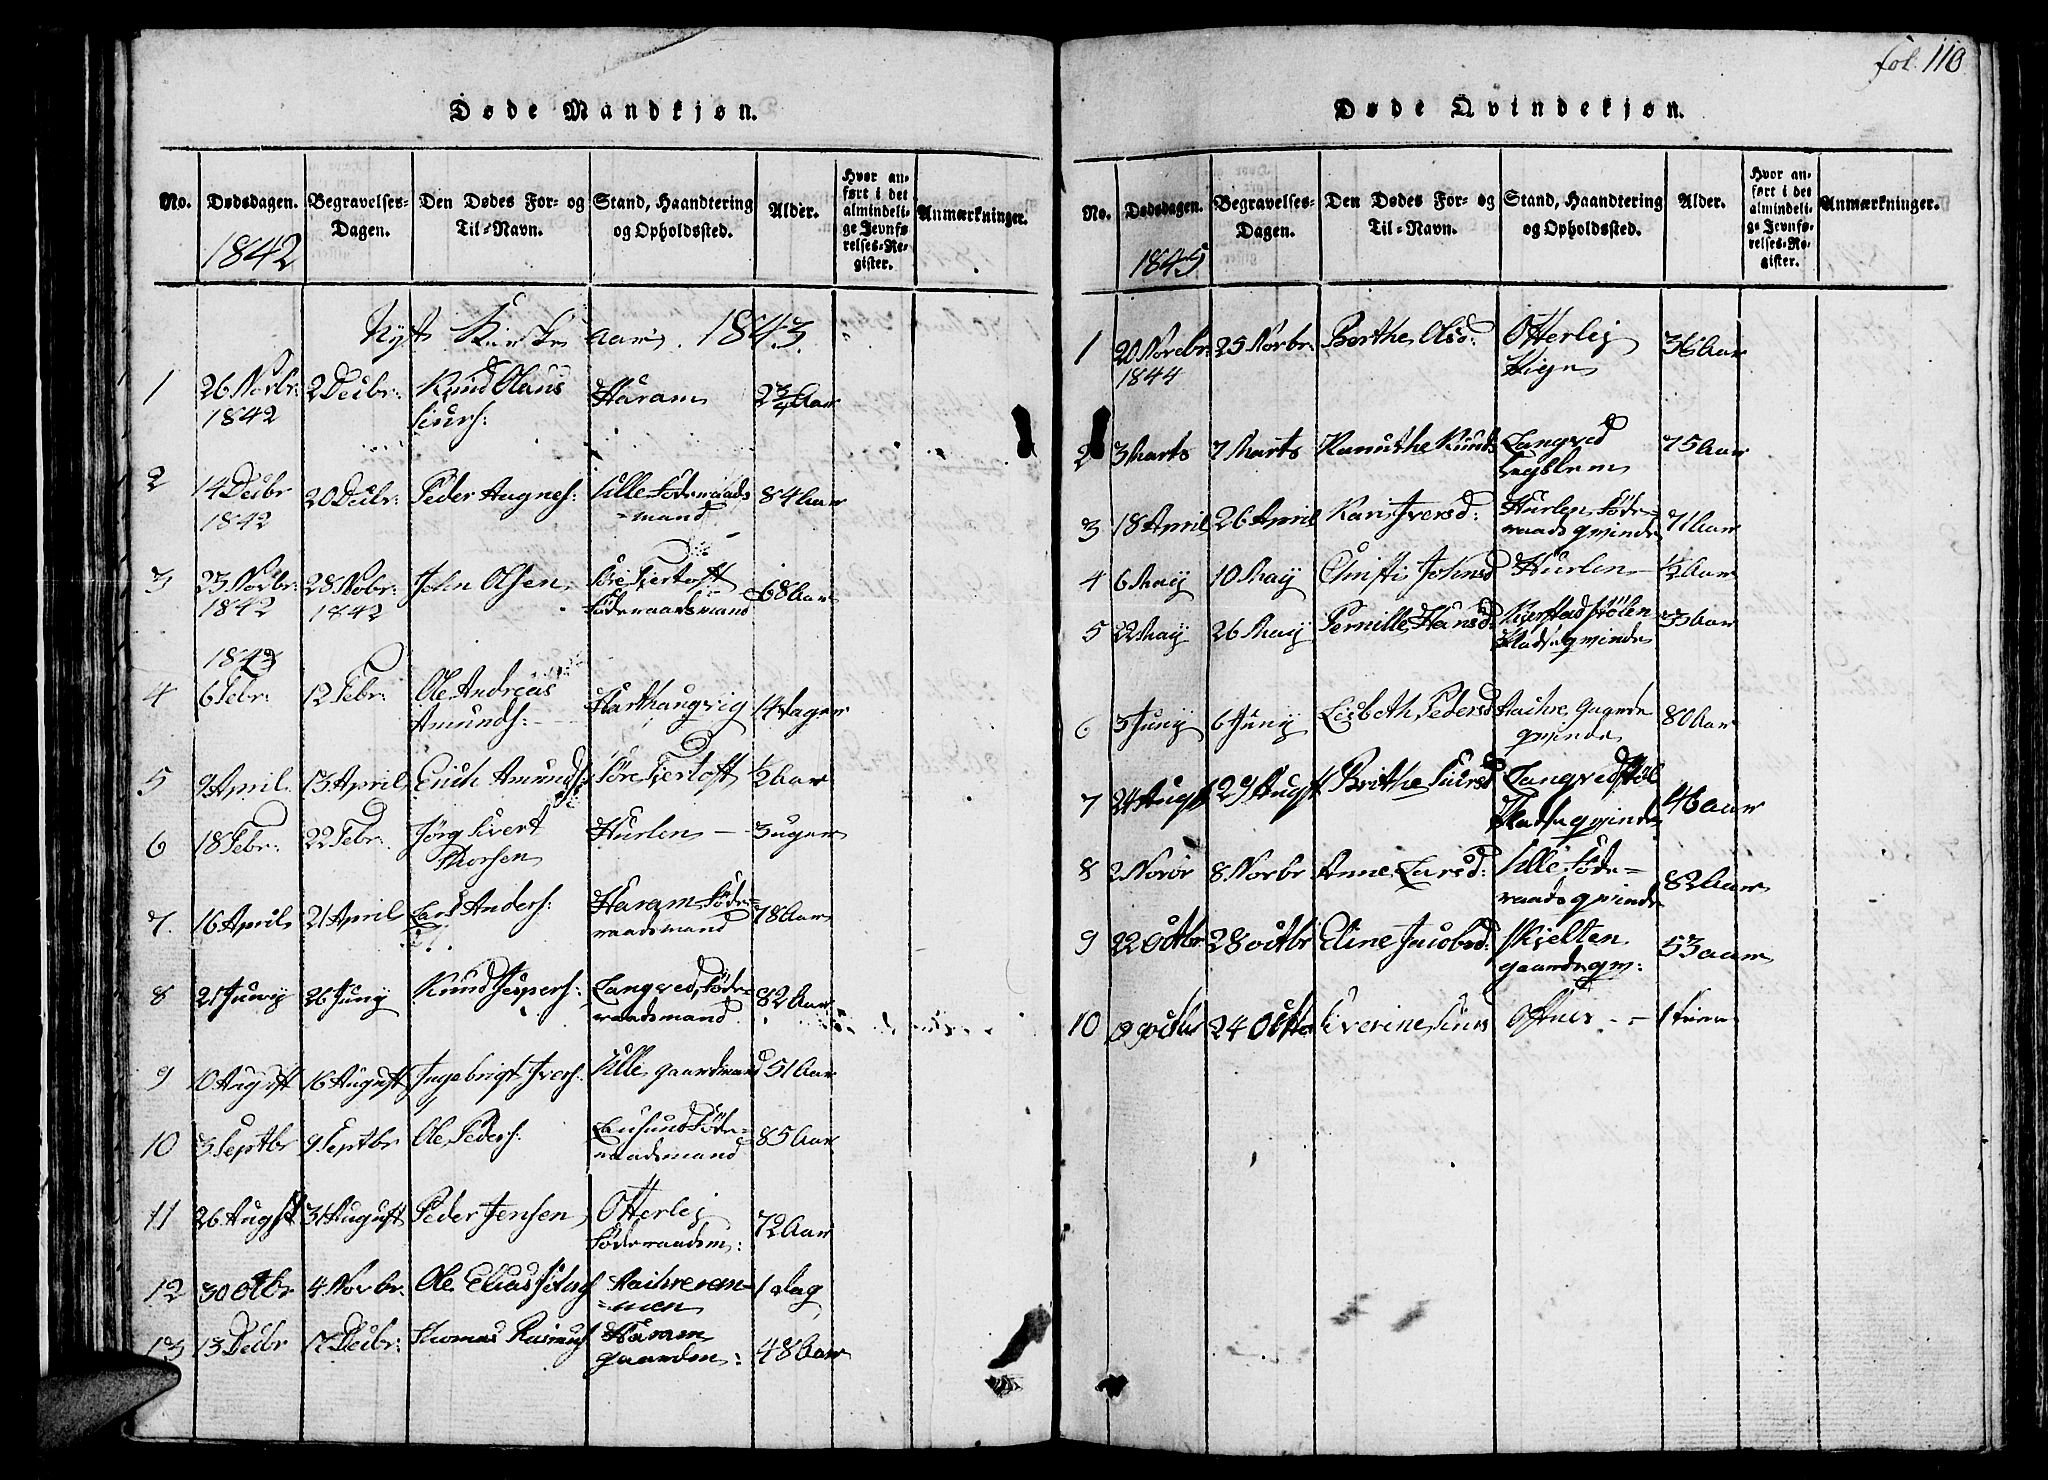 Døde Mandkjøn.
No. Dødsdagen. 1842
Begravelses-Dagen.
Den Dødes For- og Til-Navn.
Stand, Haandtering og Opholdssted.
Alder.
Hvor anført i det almindelige Jevnførelses-Register.
Anmærkninger.
Nyt Kirke aar 1843
1 26 Novbr: 1842 2 Decbr: Knud Olaus Siurs: Haram 2 3/4 Aar
2 14 Decbr 1842 20 Decbr: Peder Augnes: Ulle Föderaads=mand 84 Aar
3 23 Novbr: 1842 28 Nobr: 1842 John Olsen Föderaadsmand 68 Aar
1843
4 6 Febr: 12 Febr: Ole Andreas Amunds: 14 dager
5 9 April 13 April Erich Amunds: Söre Fiertoft 1/2 Aar
6 18 Febr: 22 Febr: Jörg Sivert Thorsen Hurlen 3 uger
7. 16 April 21 April Lars Anders: Haram Föde=raadsmand 78 Aar
8 21 Juny 26 Juny Knud Jespers: Langved, Föde=raadsmand 82 Aar
9 10 August 16 August Ingebrigt Ivers: Ulle gaardmand 51 Aar
10 3 Septbr 9 Septbr Ole Peders: Föde=raadsmand 85 Aar
11 26 Augst 31 August Peder Jensen Otterlej Föderaadsm: 72 Aar
12 30 Otbr 4 Novbr. Ole Elias 1 dag
13 13 Decbr 17 Decbr: Thomas Rasmus Haram gaardm: 48 Aar
fol. 110
Døde Qvindekjøn.
No. Dødsdagen. 1845
Begravelses-Dagen.
Den Dødes For- og Til-Navn.
Stand, Haandtering og Opholdssted.
Alder.
Hvor anført i det almindelige Jevnførelses-Register.
Anmærkninger.
1 20 Novebr: 1844 25 Novbr: Berthe Olsd: Otterlej Pige 36 Aar
2 3 Marts 7 Marts Kanuthe Knuds Langved 75 Aar
3 18 April 26 April Kari Iversd: Hurlen Föde=raads qvinde 71 Aar
4 6 May 10 May Christi Johnsd Hurlen 1/2 Aar
5 22 May 26 May Pernille Hansd: Pladsqvinde 33 Aar
6 3 Juny 6 Juny Lisbeth Pedersd qvinde 80 Aar
7 24 Augst 29 Augst Brithe Siursd Pladseqvinde 46 Aar
8 2 Novbr 8 Novbr Anne Larsd: Ulle Föde=raads qvinde 82 Aar
9 22 Octbr 28 octbr Eline Jacobsd: Skjelten gaardsqv: 53 aar
10 24 Octb Siverine Siurs 1